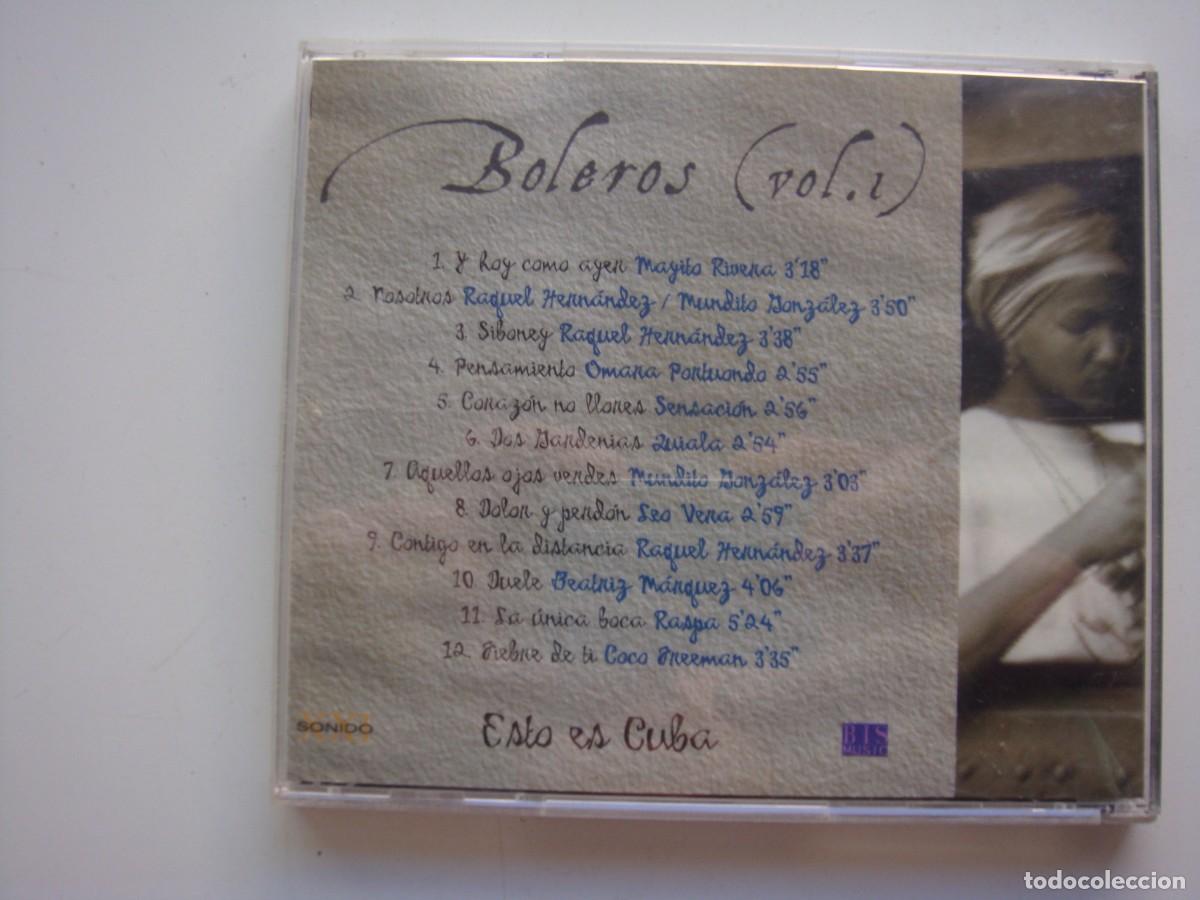 Boleros (vol.1)
1. Y hoy como ayer Mayito Rivera 3'18"
2. Nosotros Raquel Hernández / Mundito González 3'50"
3. Siboney Raquel Hernández 3'38"
4. Pensamiento Omara Portuondo 2'55"
5. Corazón no llores Sensación 2'56"
6. Dos Gardenias Quiala 2'54"
7. Aquellos ojos verdes Mundito González 3'03"
8. Dolor y perdón Leo Vera 2'59"
9. Contigo en la distancia Raquel Hernández 3'37"
10. Duele Beatriz Márquez 4'06"
11. La única boca Raspa 5'24"
12. Fiebre de ti Coco Freeman 3'35"
SONIDO
Esto es Cuba
BIS
MUSIC
todocoleccion